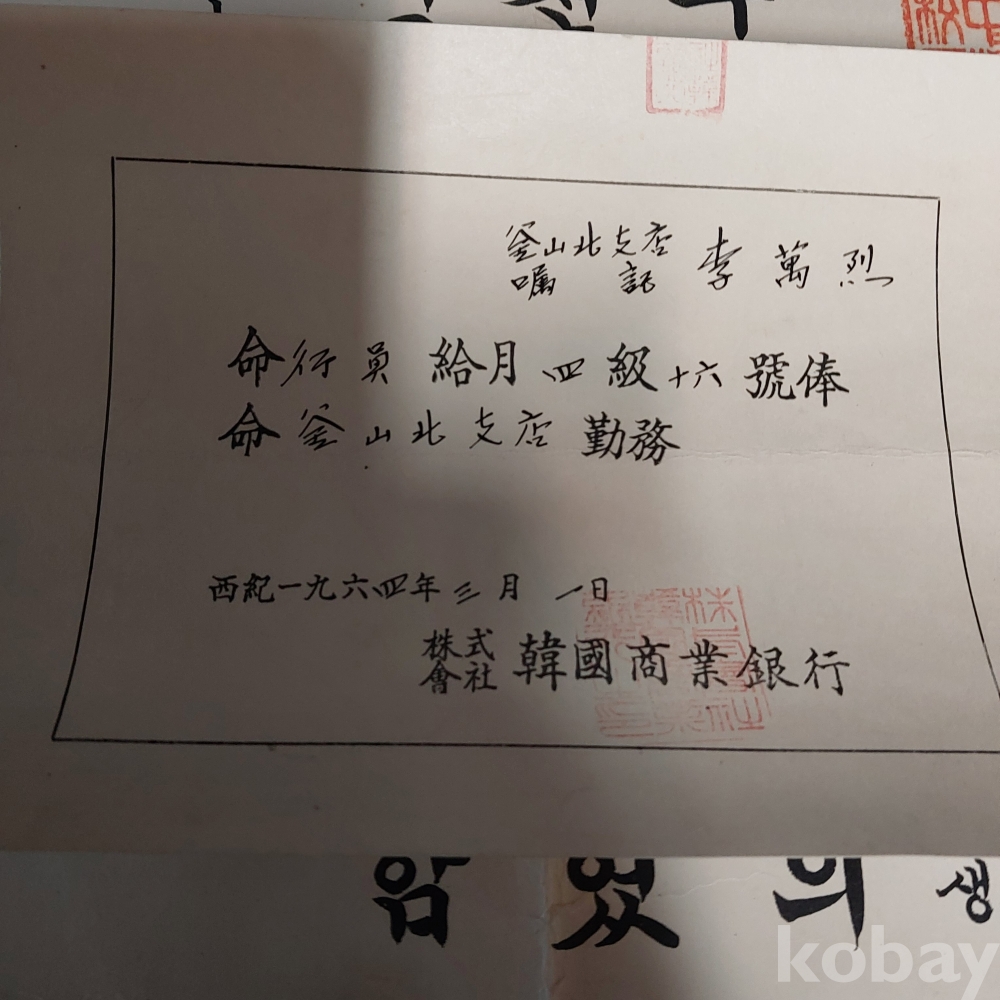 釜山北支店
囑託 李萬烈
命行員 給月四級十六號俸
命釜山北支店勤務
西紀一九六四年三月一日
株式會社 韓國商業銀行
암 였 의 생
kobay